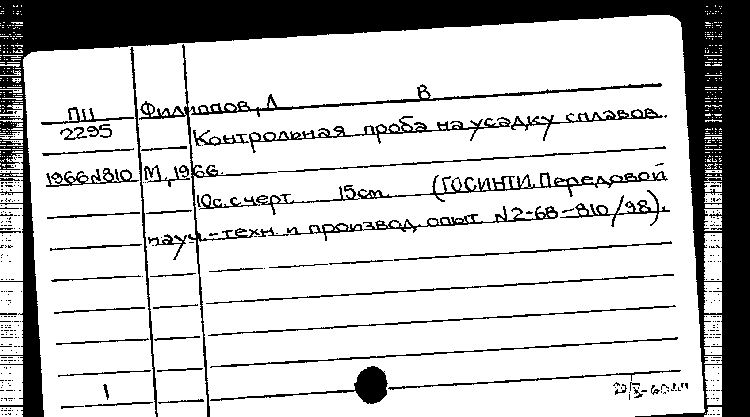 ПII Филиппов, Л В
2295 Контрольная проба на усадку сплавов.
1966 №810 М, 1966.
10с. с черт 15см. (ГОСИНТИ. Передовой
науч.-техн. и производ. опыт №2-68-810/98).
1